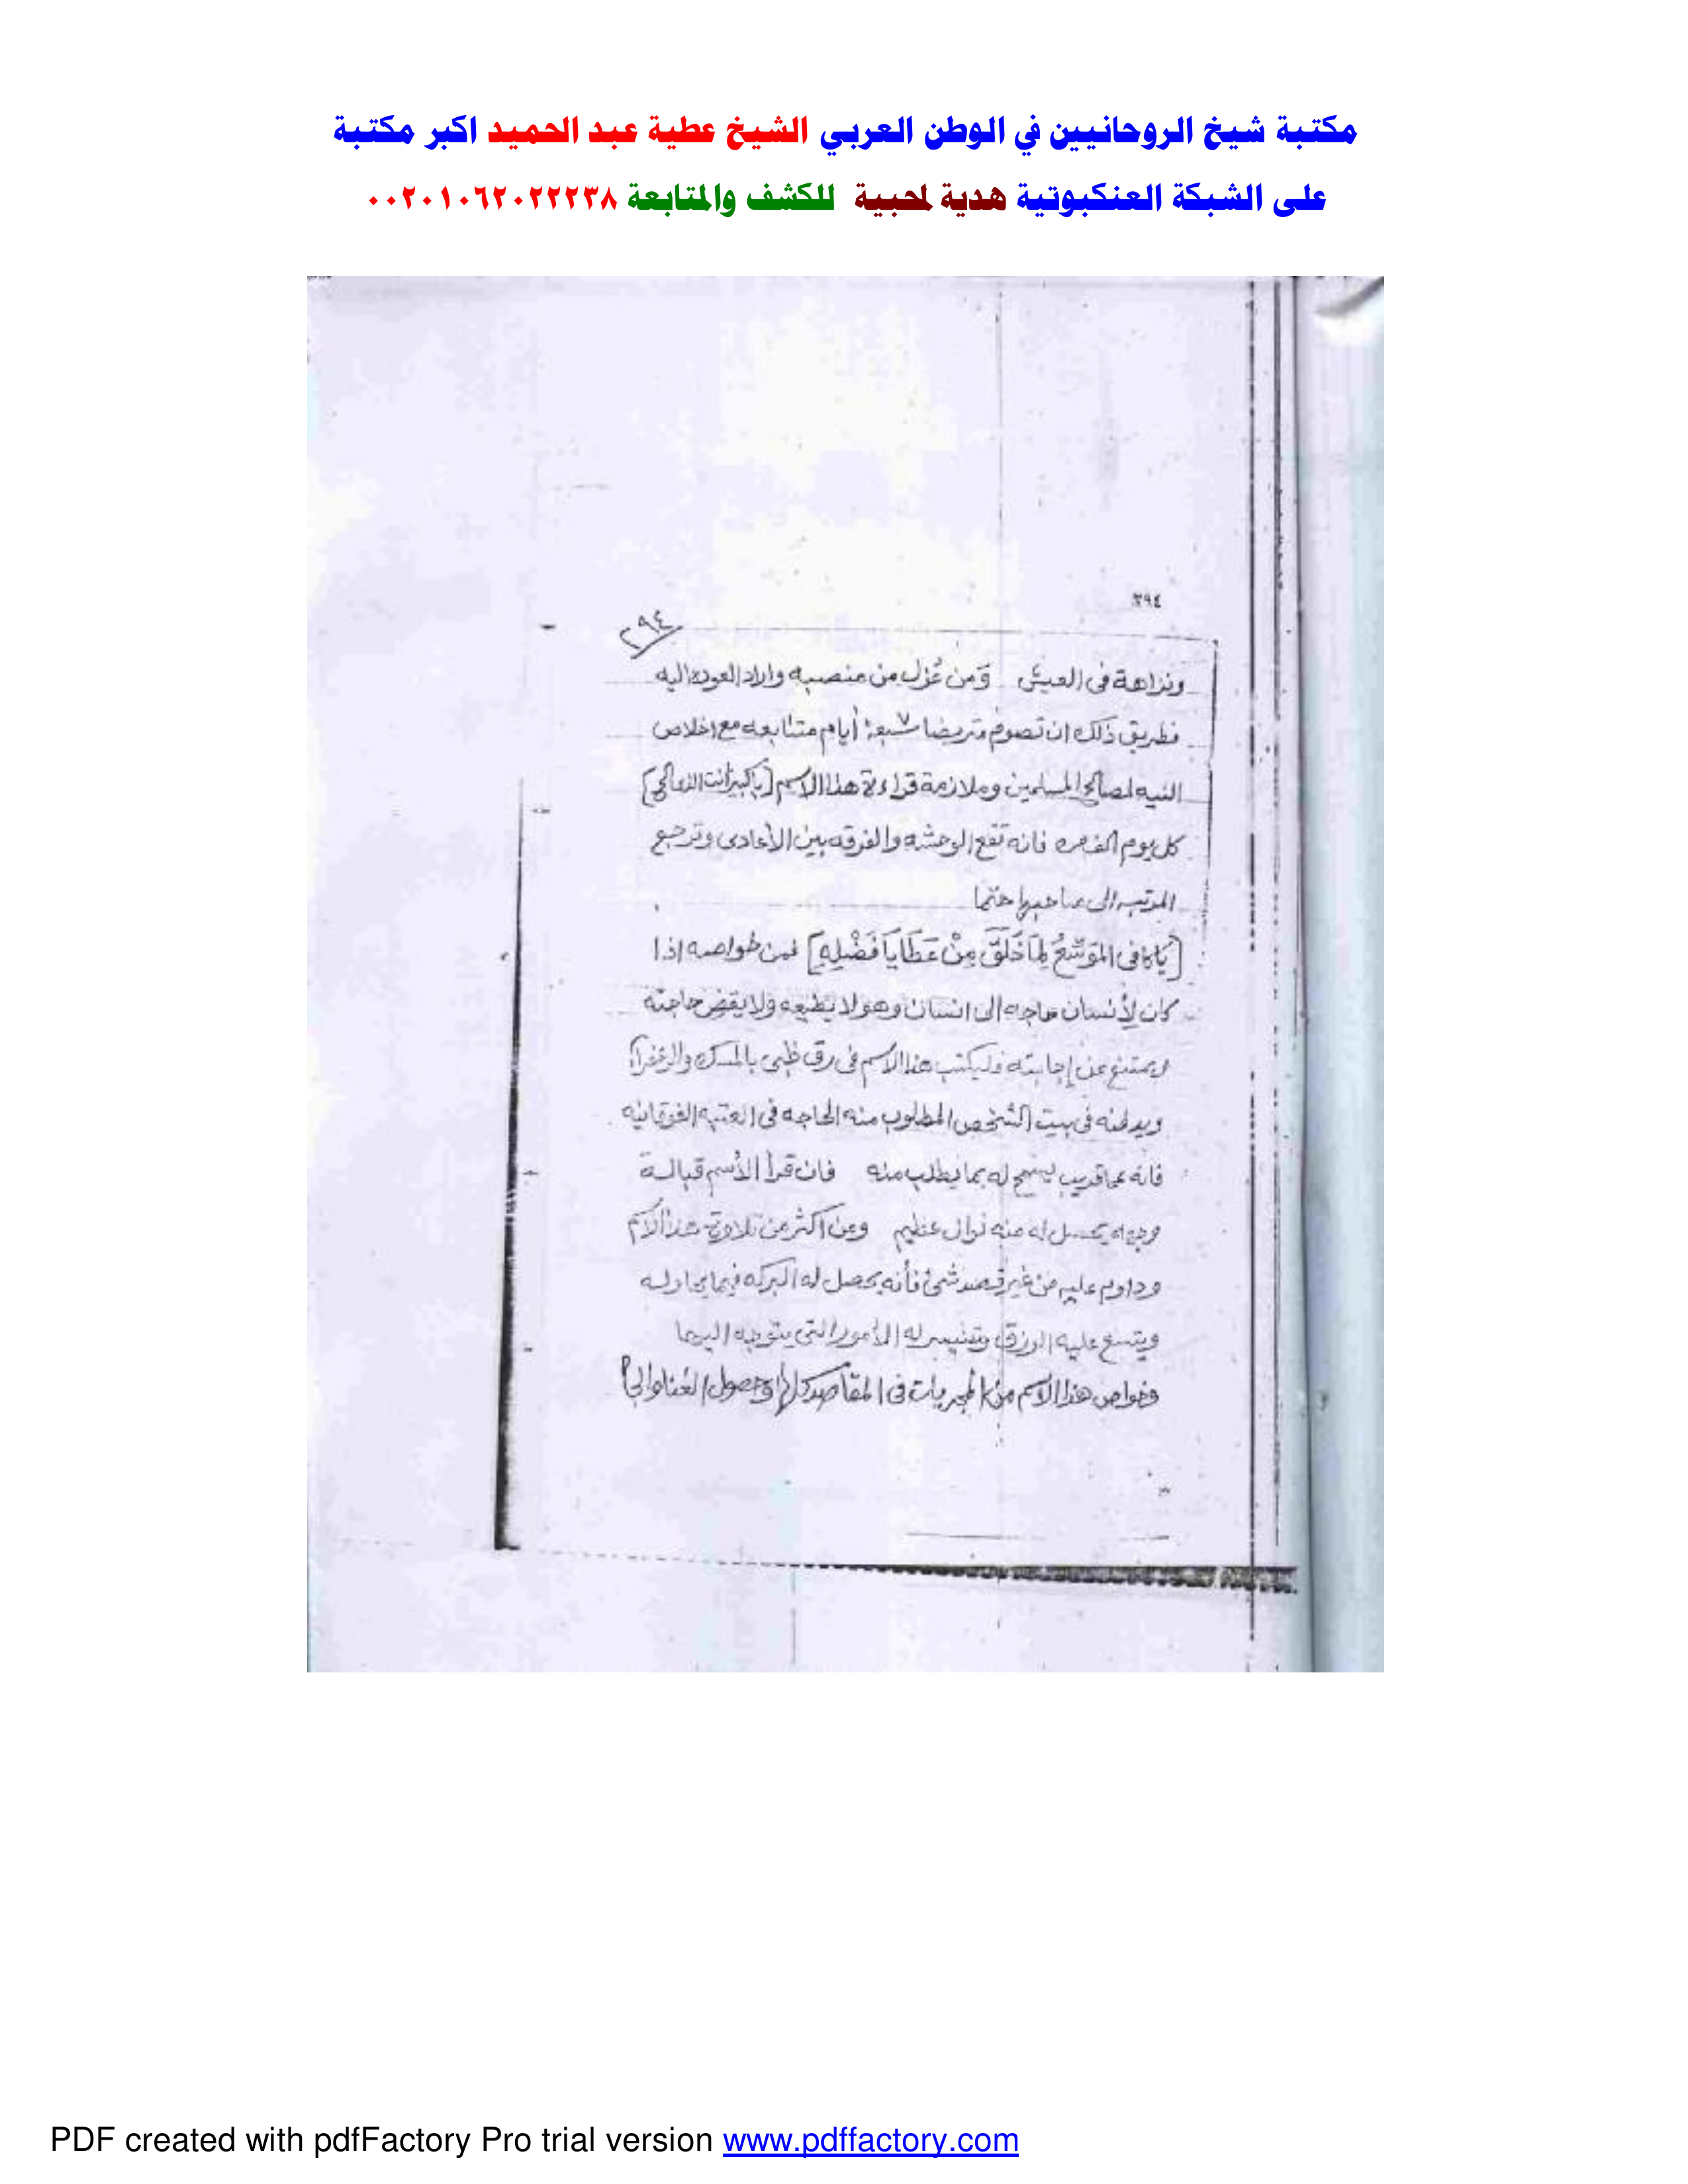 مكتبة شيخ الروحانيين في الوطن العربي الشيخ عطية عبد الحميد اكبر مكتبة
على الشبكة العنكبوتية هدية لمحبية للكشف والمتابعة ٠٠٢٠١٠٦٢٠٢٢٢٣٨
٢٩٤
٢٩٤
ونزاهة فى العيش وَمن عُزل من منصبه واراد العوده اليه
فطريق ذلك ان تصوم سبعة ٧ أيام متتابعه مع اخلاص
النيه لمصالح المسلمين وملازمة قراءة هذا الاسم [ياكبير انت الذى]
كل يوم الف مره فانه تقع الوحشه والفرقه بين الأعادى وترجع
المرتبه الى صاحبها حتما
[يَاكافى المُوَسِّعُ لِمَا خَلَقَ مِنْ عَطَايَا فَضْلِهِ] فمن خواصه اذا
كان لأنسان حاجه الى انسان وهو لا يطيعه ولا يقضى حاجته
ويمتنع عن إجابته فليكتب هذا الاسم فى رق ظبى بالمسك والزعفران
ويدفنه فى بيت الشخص المطلوب منه الحاجه فى العتبه الفوقانيه
فانه عما قريب يسمح له بما يطلب منه فان قرأ الأسم قبالة
وجهه يحصل له منه نوال عظيم ومن اكثر من تلاوة هذا الاسم
وداوم عليه من غير قصد شئ فأنه يحصل له البركه فيما يحاوله
ويتسع عليه الرزق وتتيسر له الأمور التى يتوجه اليها
وخواص هذا الاسم من المجربات فى المقاصد كلها وحصول الغنا
PDF created with pdfFactory Pro trial version www.pdffactory.com